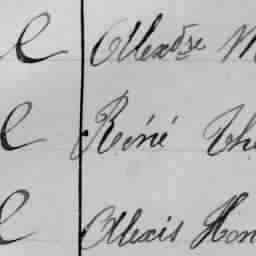 e Alexdre M
e Réné The
e Alexis Hon